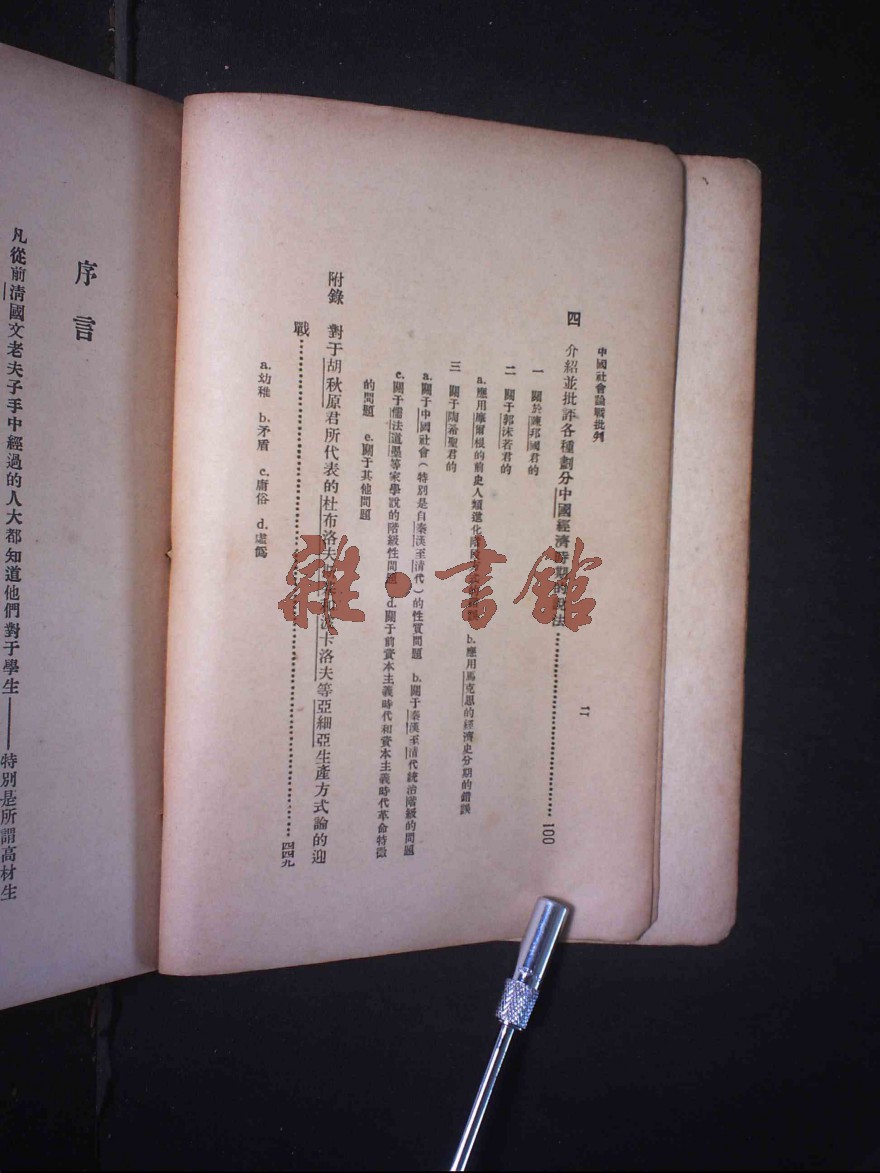 中國社會論戰批判
二
四　介紹並批評各種劃分中國經濟時期的說法……100
一　關於陳邦國君的
二　關于郭沫若君的
三　關于陶希聖君的
a.應用摩爾根的前史人類進化階段 b.應用馬克思的經濟史分期的錯誤
a.關于中國社會（特別是自秦漢至清代）的性質問題　b.關于秦漢至清代統治階級的問題
c.關于儒法道墨等家學說的階級性問題　d.關于前資本主義時代和資本主義時代革命特徵
的問題　e.關于其他問題
附錄　對于胡秋原君所代表的杜布洛夫 卡洛夫等亞細亞生產方式論的迎
戰……四四九
a.幼稚　b.矛盾　c.庸俗　d.虛僞
序言
凡從前清國文老夫子手中經過的人大都知道他們對于學生——特別是所謂高材生
雜·書館